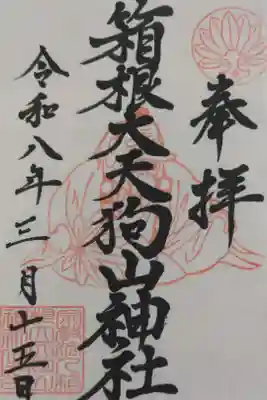 奉拝
箱根大天狗山神社
令和八年三月十五日